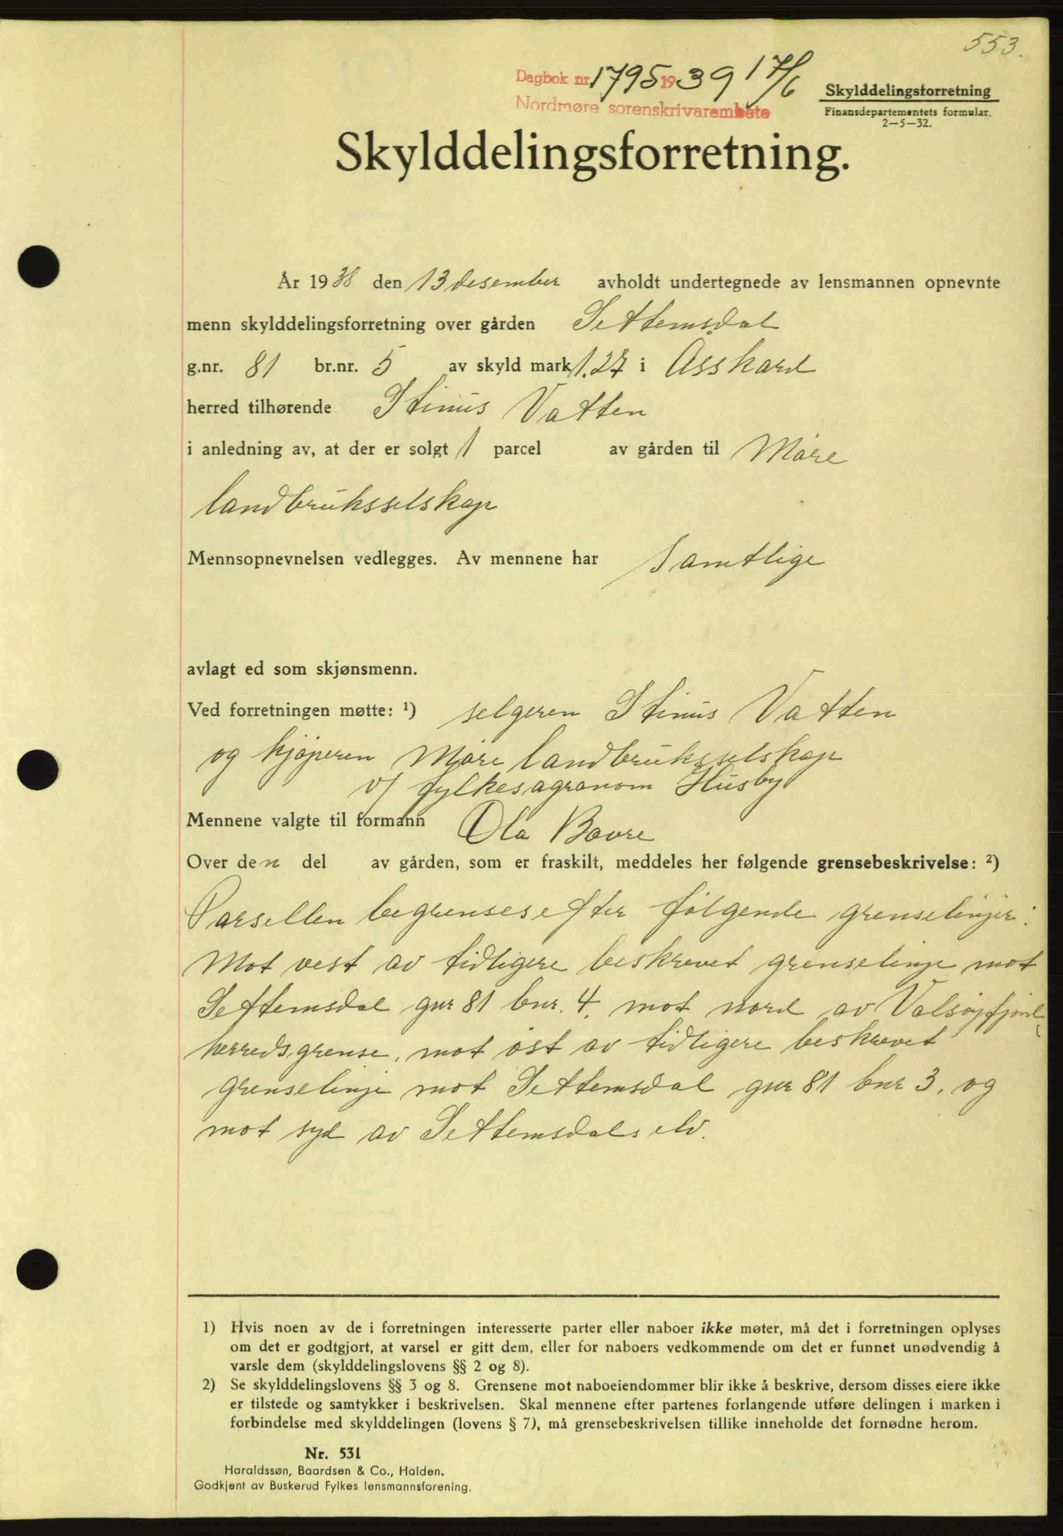 553.
Dagbok nr. 1795 1939 17/6
Nordmøre sorenskrivarembete
Skylddelingsforretning
Finansdepartementets formular.
2—5—32.
Skylddelingsforretning.
År 1938 den 13 desember avholdt undertegnede av lensmannen opnevnte
menn skylddelingsforretning over gården Settemsdal
g.nr. 81 br.nr. 5 av skyld mark 1.27 i Åsskard
herred tilhørende Stinus Vatten
i anledning av, at der er solgt 1 parcel av gården til Møre
landbruksselskap
Mennsopnevnelsen vedlegges. Av mennene har samtlige
avlagt ed som skjønsmenn.
Ved forretningen møtte: ¹) selgeren Stinus Vatten
og kjøperen Møre landbruksselskap
v/ fylkesagronom Husby
Mennene valgte til formann Ola Bøvre
Over den del av gården, som er fraskilt, meddeles her følgende grensebeskrivelse: ²)
Parsellen begrenses efter følgende grenselinjer:
Mot vest av tidligere beskrevet grenselinje mot
Settemsdal gnr 81 bnr. 4, mot nord av Valsøyfjord
herredsgrense, mot øst av tidligere beskrevet
grenselinje mot Settemsdal gnr 81 bnr 3, og
mot syd av Settemsdalselv.
1) Hvis noen av de i forretningen interesserte parter eller naboer ikke møter, må det i forretningen oplyses
om det er godtgjort, at varsel er gitt dem, eller for naboers vedkommende om det er funnet unødvendig å
varsle dem (skylddelingslovens §§ 2 og 8).
2) Se skylddelingslovens §§ 3 og 8. Grensene mot naboeiendommer blir ikke å beskrive, dersom disses eiere ikke
er tilstede og samtykker i beskrivelsen. Skal mennene efter partenes forlangende utføre delingen i marken i
forbindelse med skylddelingen (lovens § 7), må grensebeskrivelsen tillike inneholde det fornødne herom.
Nr. 531
Haraldssøn, Baardsen & Co., Halden.
Godkjent av Buskerud Fylkes lensmannsforening.